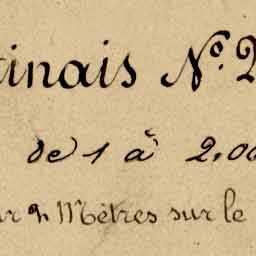 tinais Nº 2
de 1 à 2,00
ur 9 Mètres sur le